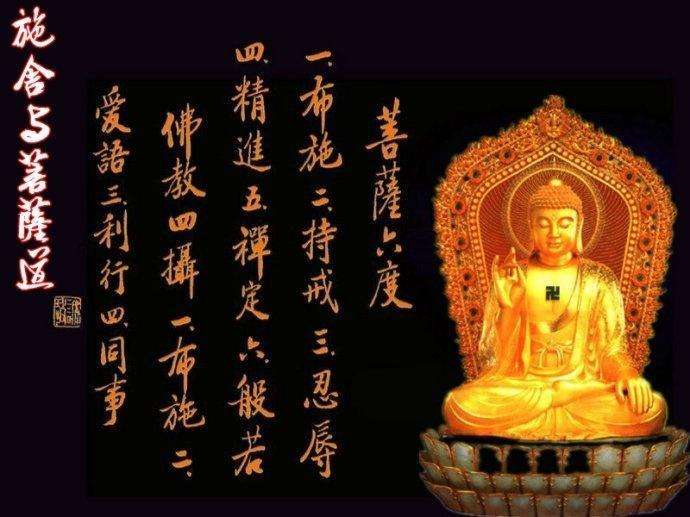 菩薩六度
一.布施二.持戒三.忍辱
四.精進五.禪定六.般若
佛教四攝一.布施二.
愛語三.利行四.同事
施舍与菩薩道
卍